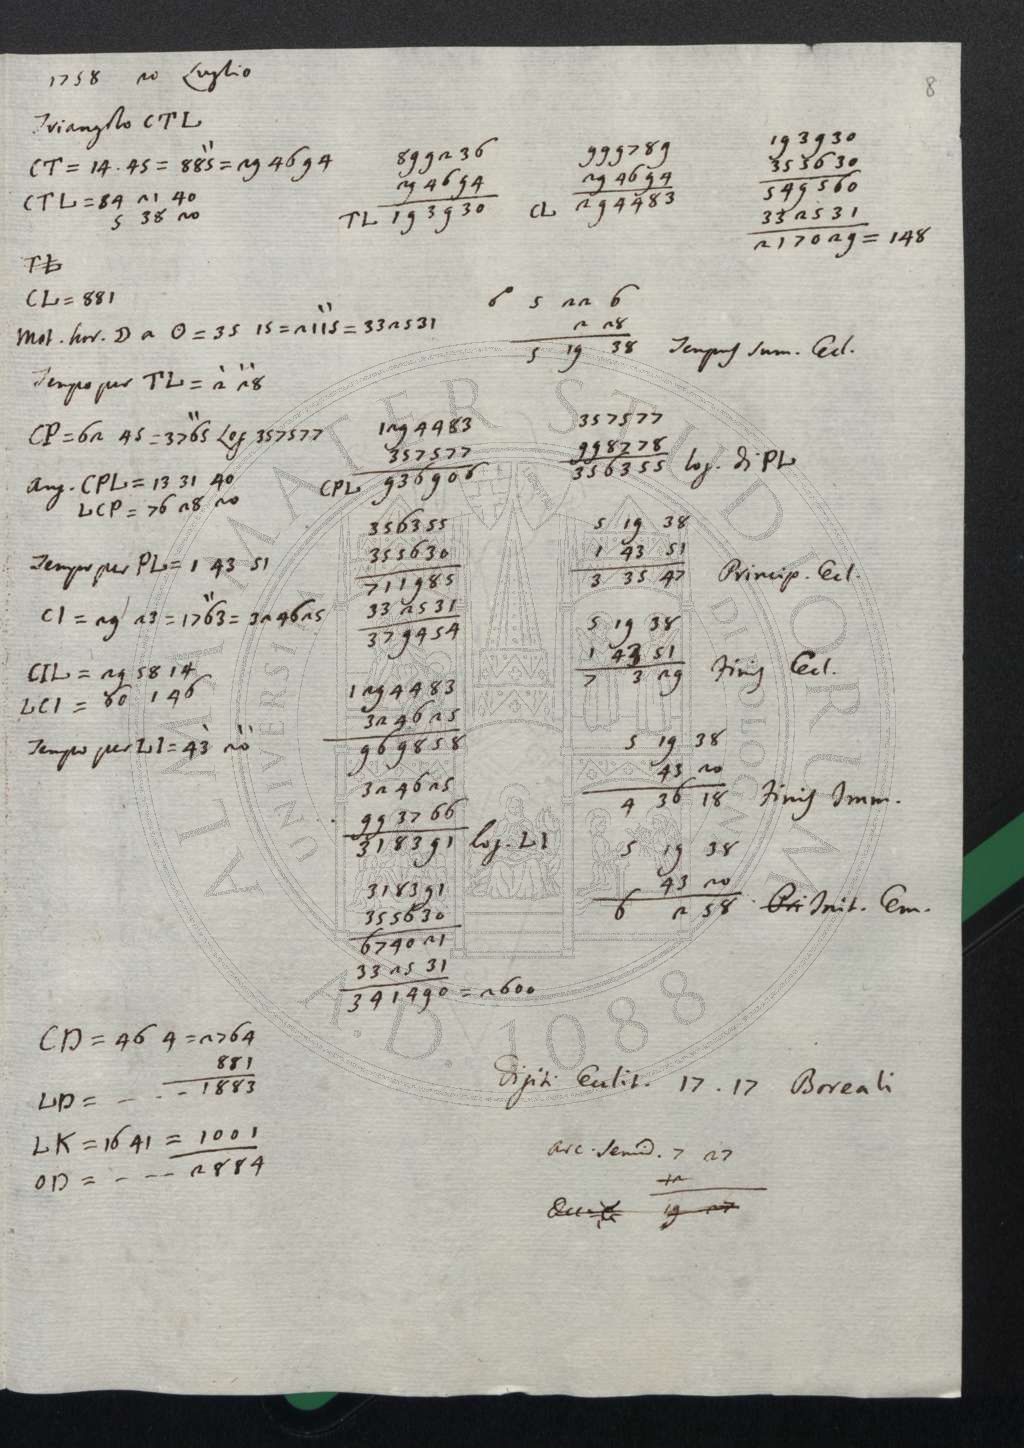 1758 20 Luglio
8
Triangolo CTL
CT = 14.45 = 885" = 294694
CTL = 84 21 40
5 38 20
899236
294694
TL 193930
999789
294694
CL 294483
193930
355630
549560
332531
217029 = 148
TL
CL = 881
Mot. hor. D a O = 35 15 = 2115" = 332531
Tempo per TL = 2' 28"
6° 5 22 6
2 28
5 19 38 Tempus Sum. Ecl.
CP = 62 45 = 3765" Log 357577
Ang. CPL = 13 31 40
LCP = 76 28 20
1294483
357577
CPL 936906
357577
998778
356355 log. di PL
Tempo per PL = 1 43 51
356355
355630
711985
332531
379454
5 19 38
1 43 51
3 35 47 Princip. Ecl.
CI = 29' 23 = 1763" = 324625
CIL = 29 58 14
LCI = 60 1 46
Tempo per LI = 43' 20"
5 19 38
1 43 51
7 3 29 Finis Ecl.
1294483
324625
969858
324625
993766
318391 log. LI
318391
355630
674021
332531
341490 = 2600
5 19 38
43 20
4 36 18 Finis Imm.
5 19 38
43 20
6 2 58 Pri Init. Em.
CD = 46 4 = 2764
881
LD = - - - 1883
LK = 16 41 = 1001
OD = - - - 2884
Digiti Eclit. 17.17 Boreali
Arc. Semid. 7 27
12
19 27
ALMA MATER STUDIORUM
UNIVERSITÀ DI BOLOGNA
A.D. 1088